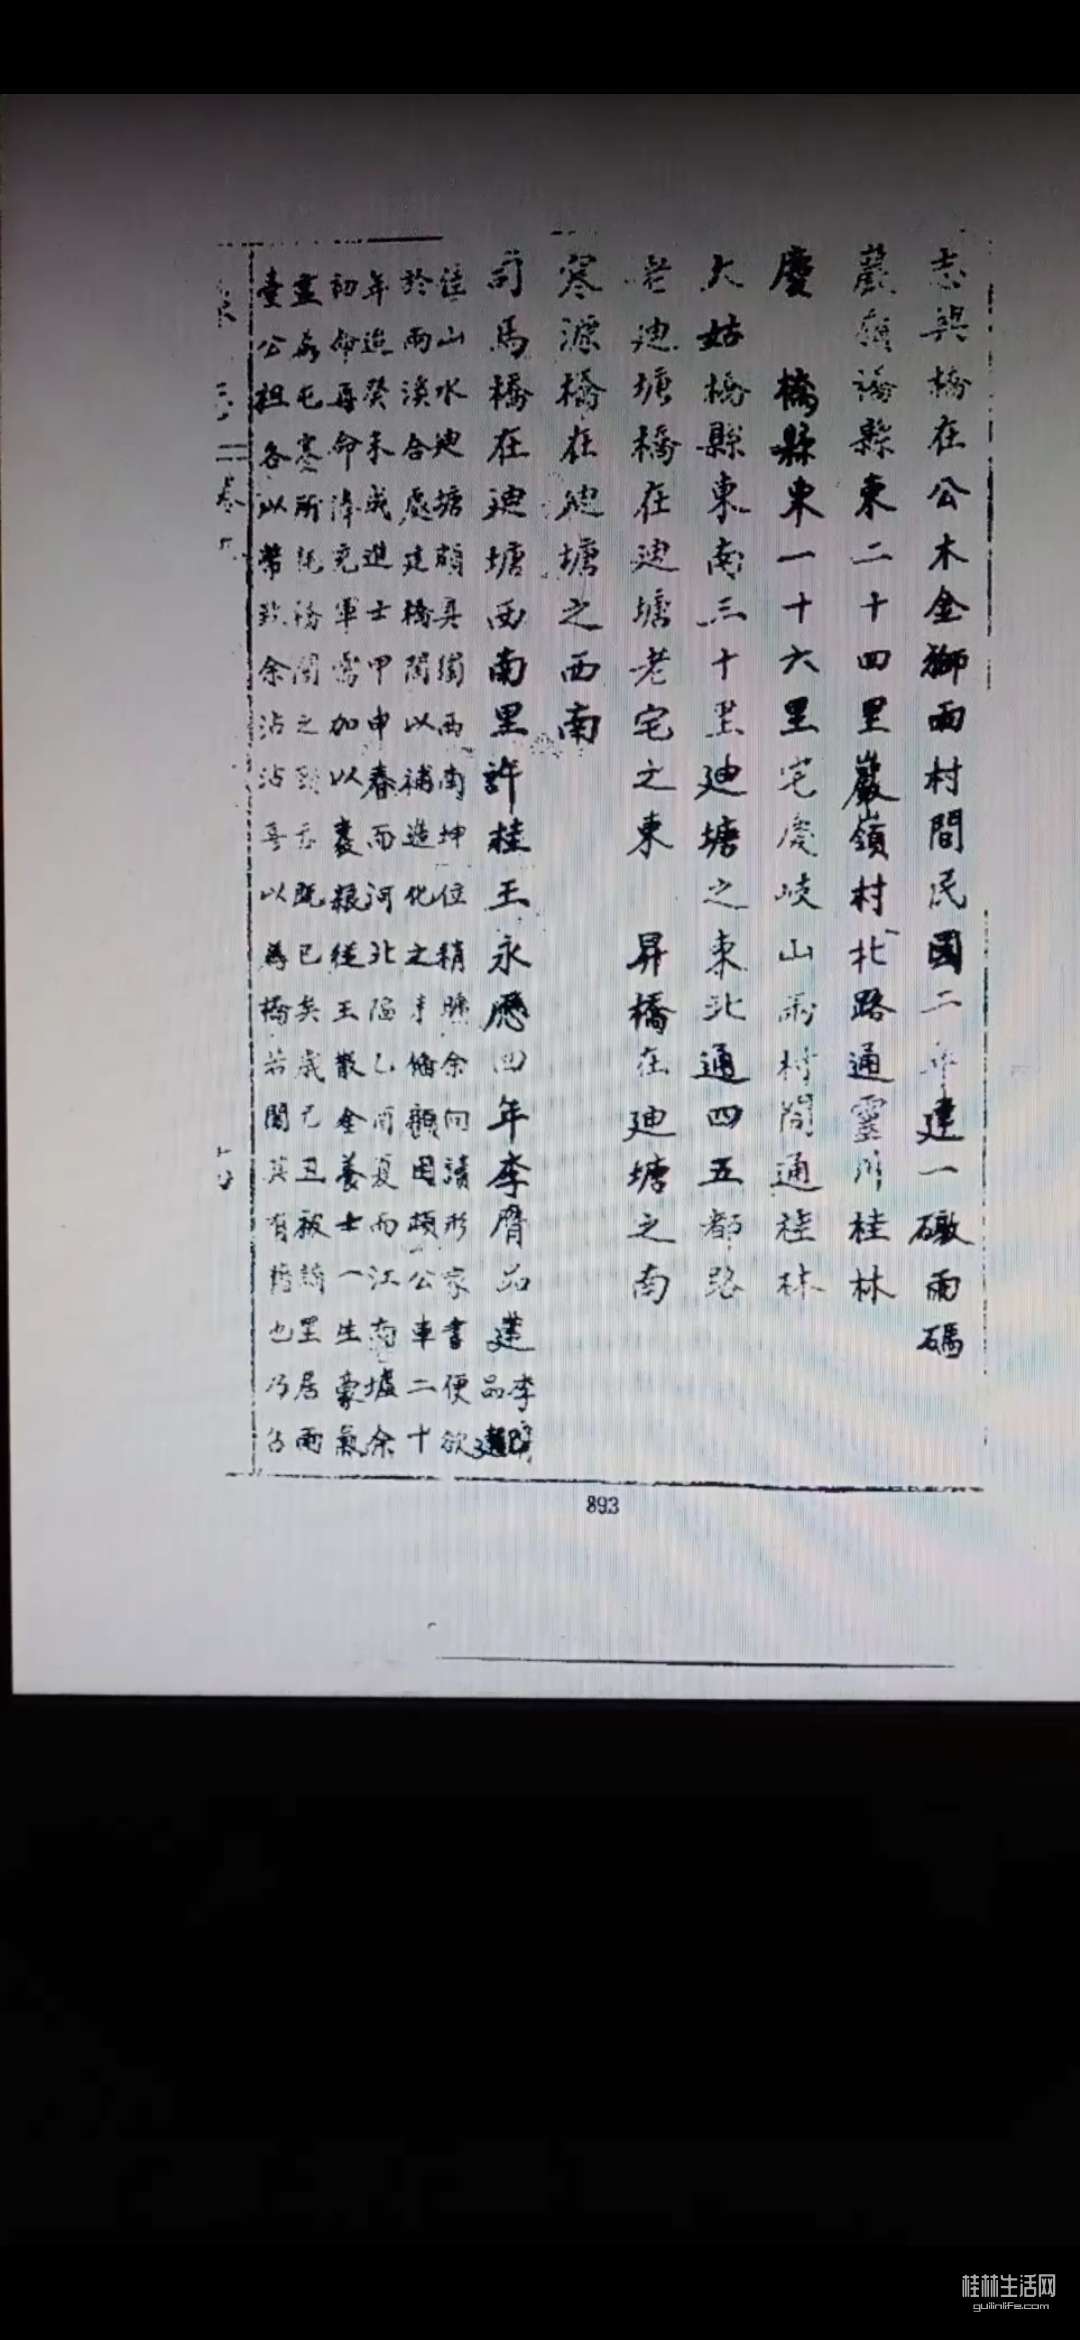 橋在公木金獅兩村間民國二年建一礅兩碼
巖嶺橋縣東二十四里巖嶺村北路通靈川桂林
慶橋縣東一十六里宅慶岐山兩村間通桂林
大姑橋縣東南三十里廸塘之東北通四五都路
老廸塘橋在廸塘老宅之東 昇橋在廸塘之南
寒源橋在廸塘之西南
司馬橋在廸塘西南里許桂王永曆四年李膺品建
李膺品
山水廸塘頗具獨西南坤位稍曠余向讀形家書便欲
於兩溪合處建橋閣以補造化之因頻公車二十
年迨癸未成進士甲申春而河北陷乙酉夏而江南墟余
初命再命洊充軍加以裹糧從王散金養士一生豪氣
盡為屯蹇所既已矣歲己丑被謫里居兩
臺公祖各以幣余沾沾喜以為橋若閣其有也乃
893
桂林生活网
guilinlife.com